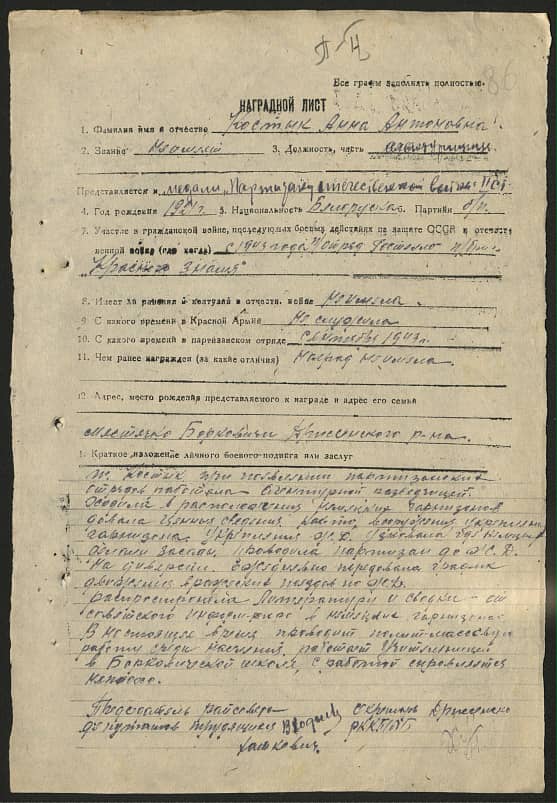 Все графы заполнять полностью.
НАГРАДНОЙ ЛИСТ
1. Фамилия имя и отчество Костык Анна Антоновна
2. Звание не имеет 3. Должность, часть
Представляется к медали "Партизану отечественной войны" II ст
4. Год рождения 1921 г. 5. Национальность Белоруска 6. Партийн б/п.
7. Участие в гражданской войне, последующих боевых действиях по защите СССР и отечест
венной войне (где когда) с 1943 года отряд Гастелло
"Красного знамя"
8. Имеет ли ранения и контузии в отечеств. войне Не имела.
9. С какого времени в Красной Армии Не служила
10. С какого времени в партизанском отряде 1943 г.
11. Чем ранее награжден (за какие отличия) Наград не имела.
12. Адрес, место рождения представляемого к награде и адрес его семьи
местечко Борковичи Дриссенского р-на.
1. Краткое изложение личного боевого подвига или заслуг
т. Костык при появлении партизанских
отрядов работала агентурной разведчицей.
Сходила в расположения немецких гарнизонов
давала ценные сведения, вооружения укрепления
гарнизона. Укрепления Ж.Д. Узнавала где немцы
делали засады, проводила партизан до Ж.Д.
на диверсии. Ежедневно передавала график
движения вражеских поездов по Ж.Д.
распространяла литературу и сводки от
советского информбюро в немецких гарнизонах
В настоящее время проводит полит-массовую
работу среди населения, работает учительницей
в Борковичской школе, с работой справляется
неплохо.
Председатель райсовета
депутатов трудящихся
Секретарь Дриссенского
РККП(б)Б